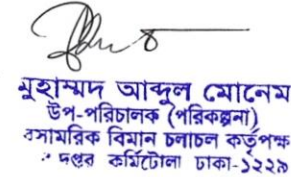 মুহাম্মদ আব্দুল মোনেম
উপ-পরিচালক (পরিকল্পনা)
বসামরিক বিমান চলাচল কর্তৃপক্ষ
দপ্তর কুর্মিটোলা ঢাকা-১২২৯